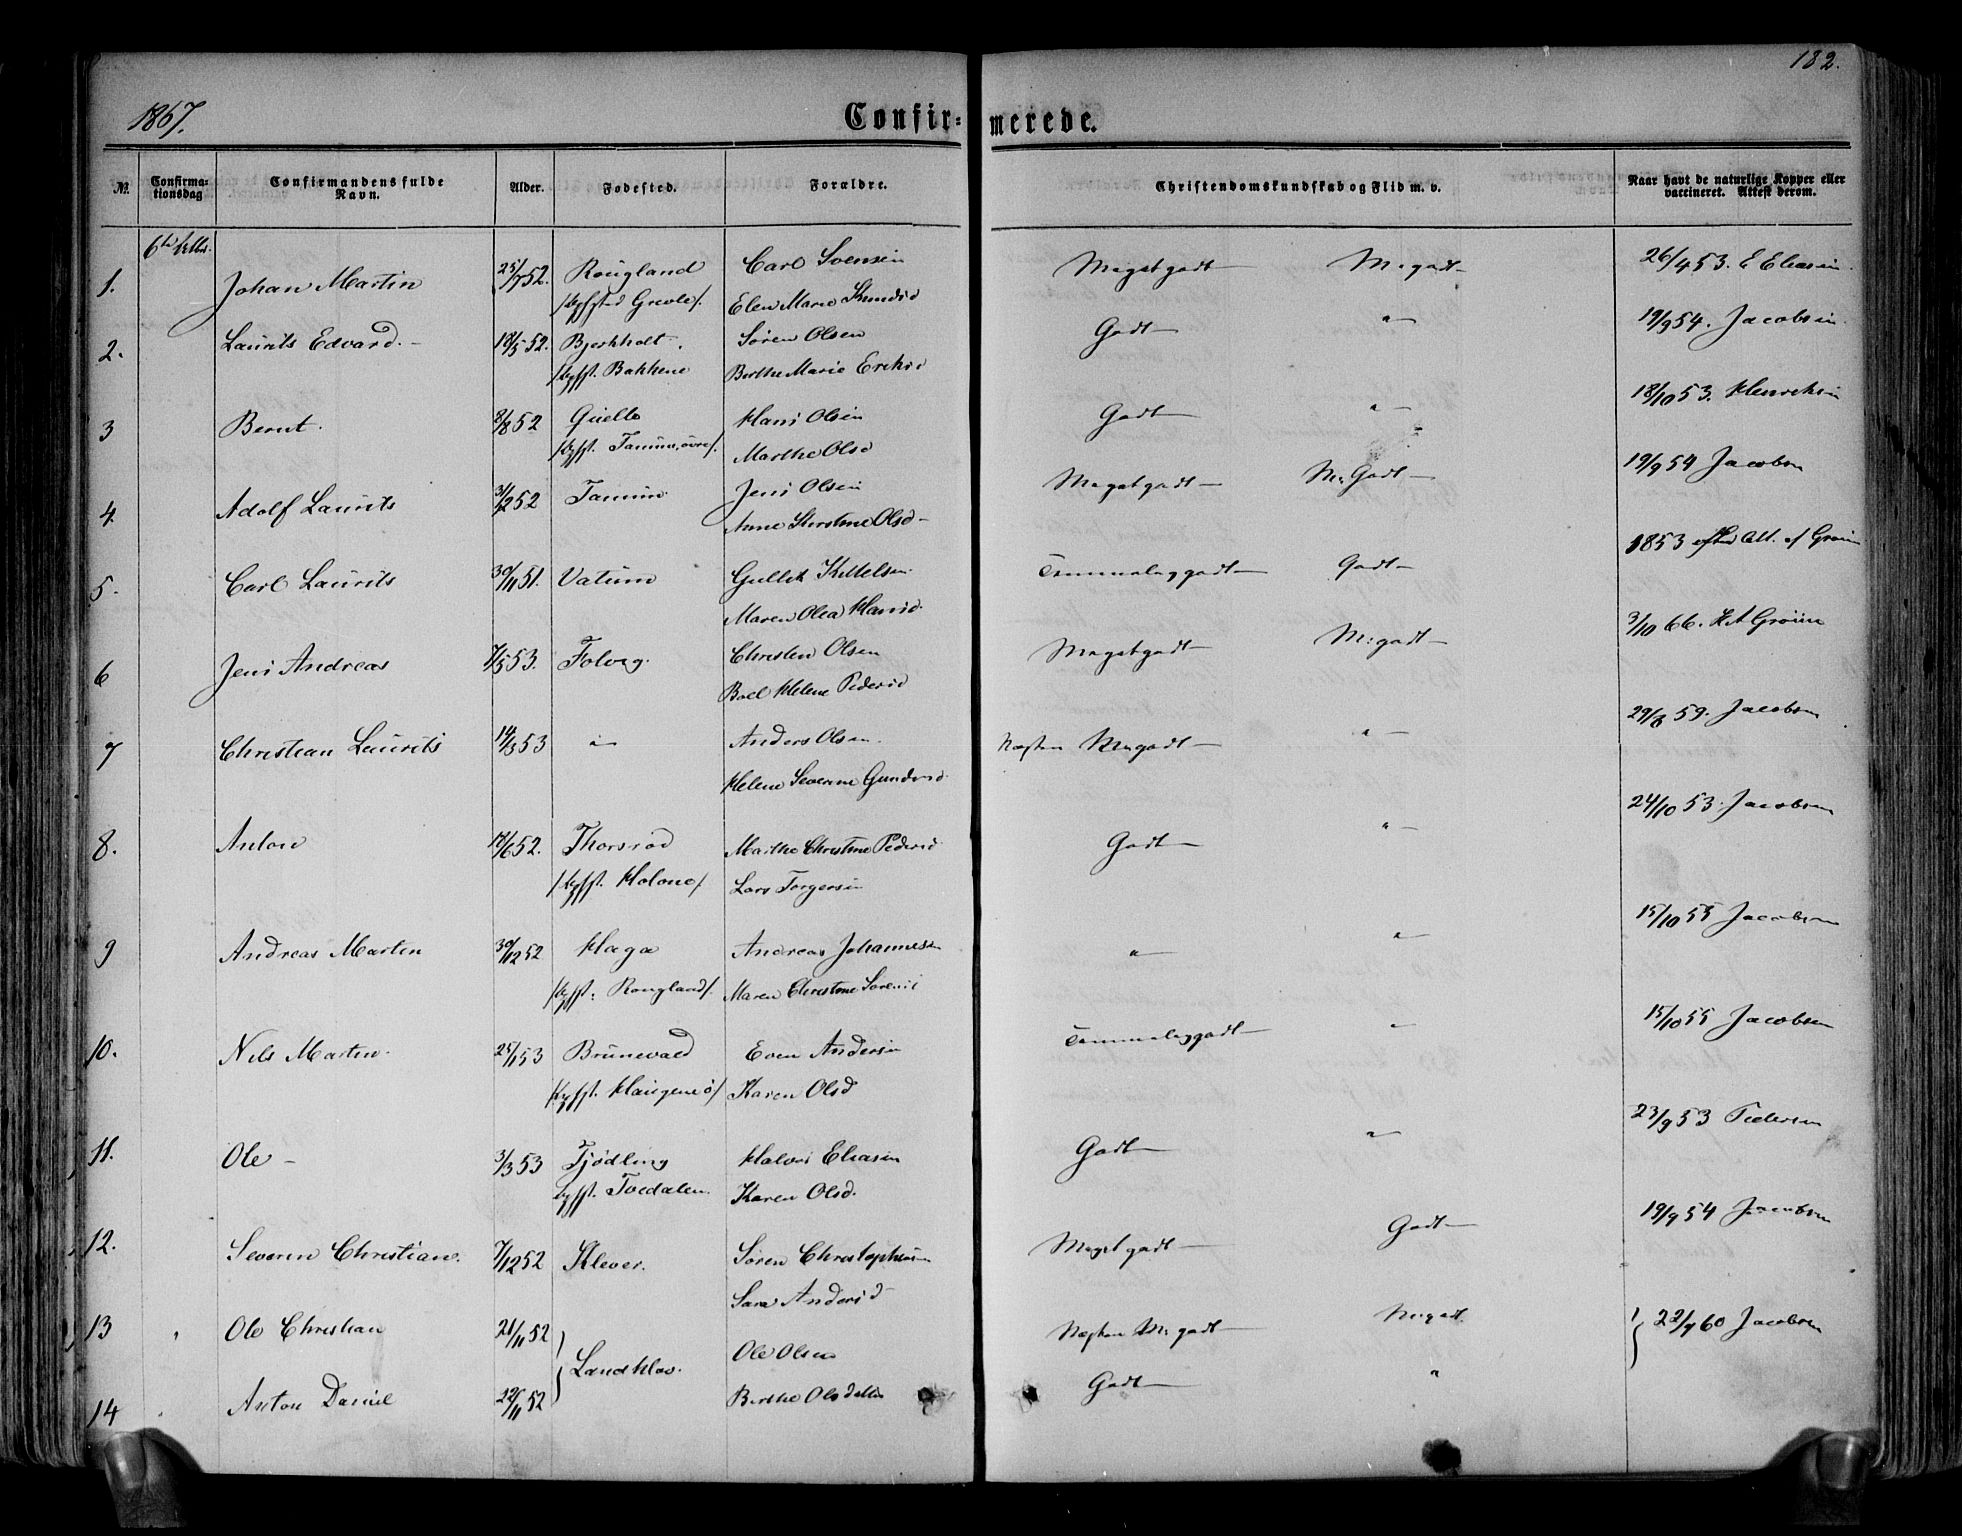 182.
1867.
Confir=merede.
№.
Confirma-
tionsdag
Confirmandens fulde
Navn.
Alder.
Fodested.
Forældre.
Christendomskundskab og Flid m. v.
Naar havt de naturlige Kopper eller
vaccineret. Attest derom.
1. Johan Martin 25/7 52. Rougland Carl Svensen Megetgodt M. godt 26/4 53. E Eliasen
Grevle/. Elen Marie
2. Laurits Edvard. 18/5 52. Bjerkholt. Søren Olsen Godt " 19/9 54. Jacobsen
Bakkene Berthe Marie Ericksd
3 Bernt. 8/8 52 Guello Hans Olsen Godt " 18/10 53. Henriksen
Tanum, øvre/. Marthe Olsd
4 Adolf Laurits 31/12 52 Tanum Jens Olsen Megetgodt M. Godt 19/9 54 Jacobsen
Anne Kirstine Olsd
5. Carl Laurits 30/11 51. Vatum Gullik Kittelsen Temmeliggodt Godt 1853 Att. af
Maren Olea Hansd.
6 Jens Andreas 7/5 53. Folvig. Christen Olsen Megetgodt M. godt 3/10 66.
Boel Helene Pedersd
7 Christian Laurits 14/3 53 " Anders Olsen. Næsten M. godt " 29/8 59. Jacobsen
Helene Severine
8. Anton 18/6 52. Thorsrød Marthe Christine Pedersd Godt " 24/10 53. Jacobsen
Holone/. Lars Torgersen
9 Andreas Martin 30/12 52 Haga Andreas Johannesen " " 15/10 55 Jacobsen
Rougland/. Maren Christine Sørensd
10. Nils Martin. 25/1 53 Brunevald Even Andersen Temmeliggodt " 15/10 55 Jacobsen
Haugene Karen Olsd
11. Ole 3/3 53 Fjødling Halvor Eliasen Godt " 23/9 53 Pedersen
Tvedalen. Karen Olsd.
12. Severin Christian. 7/12 52 Klever. Søren Christophersen Meget godt Godt 19/9 54 Jacobsen
Sara Andersd
13 Ole Christian 21/11 52 Ole Olsen Næsten M. godt M. godt 22/7 60 Jacobsen
14 Anton Daniel Berthe Olsdatter Godt "